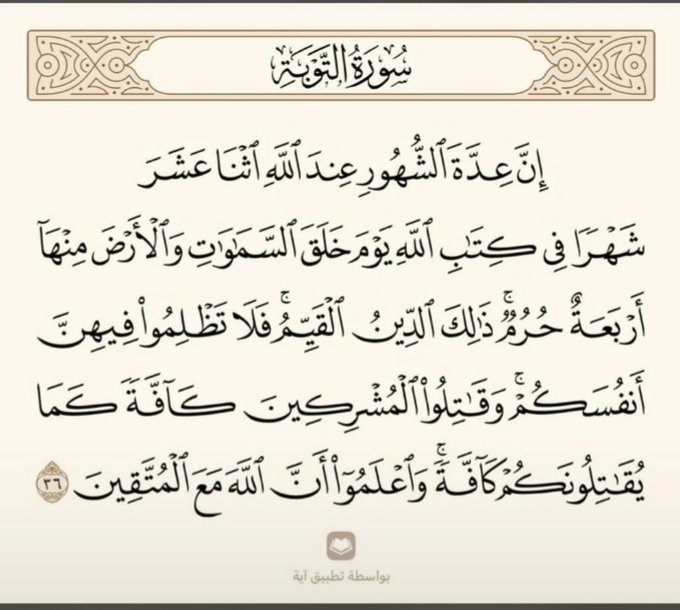 سُورَةُ التَّوْبَةِ
إِنَّ عِدَّةَ ٱلشُّهُورِ عِندَ ٱللَّهِ ٱثْنَا عَشَرَ
شَهْرًا فِى كِتَٰبِ ٱللَّهِ يَوْمَ خَلَقَ ٱلسَّمَٰوَٰتِ وَٱلْأَرْضَ مِنْهَآ
أَرْبَعَةٌ حُرُمٌۚ ذَٰلِكَ ٱلدِّينُ ٱلْقَيِّمُۚ فَلَا تَظْلِمُوا۟ فِيهِنَّ
أَنفُسَكُمْۚ وَقَٰتِلُوا۟ ٱلْمُشْرِكِينَ كَآفَّةً كَمَا
يُقَٰتِلُونَكُمْ كَآفَّةًۚ وَٱعْلَمُوٓا۟ أَنَّ ٱللَّهَ مَعَ ٱلْمُتَّقِينَ ٣٦
بواسطة تطبيق آية